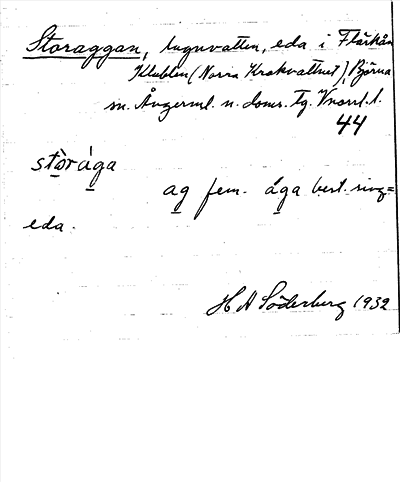 Storaggan, lugnvatten, eda i Flärkån
Klubben (Norra Krokvattnet), Björna
sn. Ångerml. n. doms. tg. Vnorrl. l.
44
stòràga
ag fem. ága best. ring=
eda.
H A Söderberg 1932